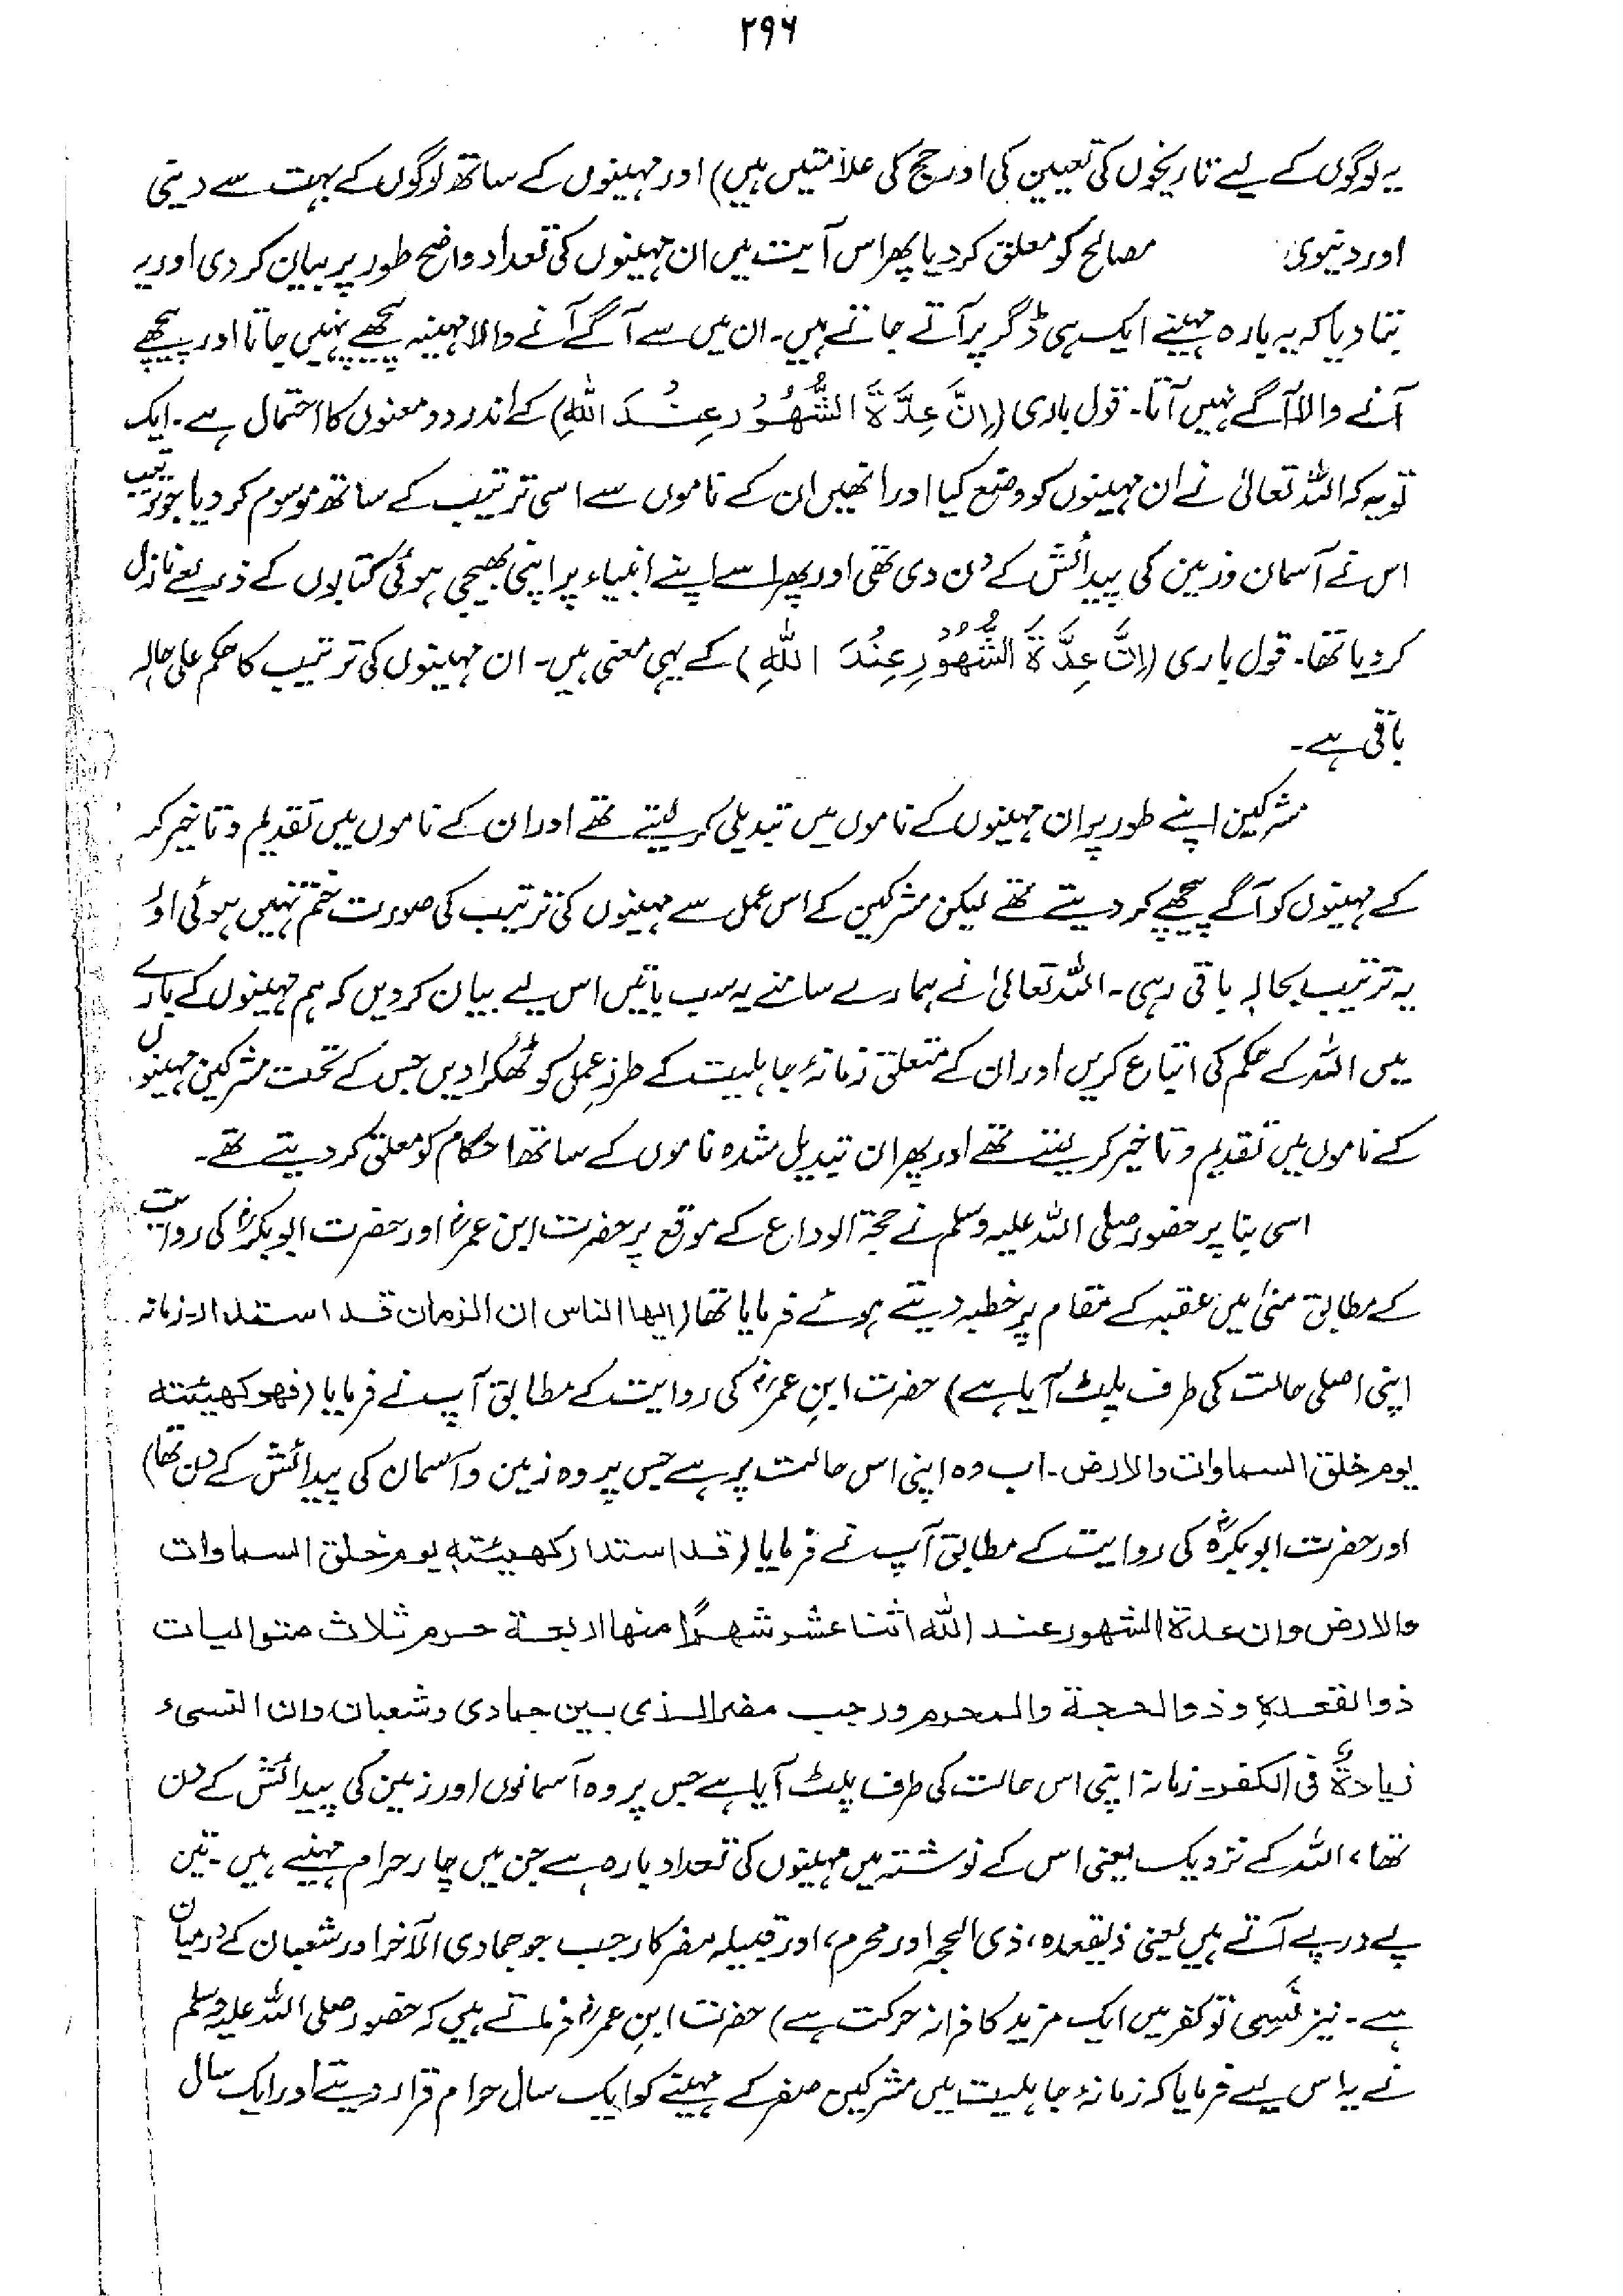 ۲۹۶
یہ لوگوں کے لیے تاریخوں کی تعیین کی اور حج کی علامتیں ہیں) اور مہینوں کے ساتھ لوگوں کے بہت سے دینی
اور دنیوی مصالح کو معلق کر دیا پھر اس آیت میں ان مہینوں کی تعداد واضح طور پر بیان کر دی اور یہ
بتا دیا کہ یہ بارہ مہینے ایک ہی ڈگر پر آتے جاتے ہیں۔ ان میں سے آگے آنے والا مہینہ پیچھے نہیں جاتا اور پیچھے
آنے والا آگے نہیں آتا۔ قول باری (اِنَّ عِدَّۃَ الشُّھُوْرِ عِنْدَ اللّٰہِ) کے اندر دو معنوں کا احتمال ہے۔ ایک
تو یہ کہ اللہ تعالیٰ نے ان مہینوں کو وضع کیا اور انھیں ان کے ناموں سے اسی ترتیب کے ساتھ موسوم کر دیا جو ترتیب
اس نے آسمان و زمین کی پیدائش کے دن دی تھی اور پھر اسے اپنے انبیاء پر اپنی بھیجی ہوئی کتابوں کے ذریعے نازل
کر دیا تھا۔ قول باری (اِنَّ عِدَّۃَ الشُّھُوْرِ عِنْدَ اللّٰہِ) کے یہی معنی ہیں۔ ان مہینوں کی ترتیب کا حکم علی حالہ
باقی ہے۔
مشرکین اپنے طور پر ان مہینوں کے ناموں میں تبدیلی کر لیتے تھے اور ان کے ناموں میں تقدیم و تاخیر کر
کے مہینوں کو آگے پیچھے کر دیتے تھے لیکن مشرکین کے اس عمل سے مہینوں کی ترتیب کی صورت ختم نہیں ہوئی اور
یہ ترتیب بحالہ باقی رہی۔ اللہ تعالیٰ نے ہمارے سامنے یہ سب باتیں اس لیے بیان کر دیں کہ ہم مہینوں کے بارے
میں اللہ کے حکم کی اتباع کریں اور ان کے متعلق زمانۂ جاہلیت کے طرزِ عمل کو ٹھکرا دیں جس کے تحت مشرکین مہینوں
کے ناموں میں تقدیم و تاخیر کر لیتے تھے اور پھر ان تبدیل شدہ ناموں کے ساتھ احکام کو معلق کر دیتے تھے۔
اسی بنا پر حضور صلی اللہ علیہ وسلم نے حجۃ الوداع کے موقع پر حضرت ابن عمرؓ اور حضرت ابو بکرہؓ کی روایت
کے مطابق منیٰ میں عقبہ کے مقام پر خطبہ دیتے ہوئے فرمایا تھا (ایھا الناس ان الزمان قد استدار۔ زمانہ
اپنی اصلی حالت کی طرف پلٹ آیا ہے) حضرت ابنِ عمرؓ کی روایت کے مطابق آپ نے فرمایا (فھو کھیئتہ
یوم خلق السماوات والارض۔ اب وہ اپنی اس حالت پر ہے جس پر وہ زمین و آسمان کی پیدائش کے دن تھا)
اور حضرت ابو بکرہؓ کی روایت کے مطابق آپ نے فرمایا (قد استدار کھیئتہ یوم خلق السماوات
والارض وان عدۃ الشھور عند اللہ اثنا عشر شھرًا منھا اربعۃ حرم ثلاث متوالیات
ذوالقعدہ وذوالحجۃ والمحرم ورجب مضر الذی بین جمادی وشعبان وان النسیء
زیادۃٌ فی الکفر۔ زمانہ اپنی اس حالت کی طرف پلٹ آیا ہے جس پر وہ آسمانوں اور زمین کی پیدائش کے دن
تھا، اللہ کے نزدیک یعنی اس کے نوشتہ میں مہینوں کی تعداد بارہ ہے جن میں چار حرام مہینے ہیں۔ تین
پے در پے آتے ہیں یعنی ذیقعدہ، ذی الحجہ اور محرم، اور قبیلہ مضر کا رجب جو جمادی الآخر اور شعبان کے درمیان
ہے۔ نیز نَسِّی تو کفر میں ایک مزید کافرانہ حرکت ہے) حضرت ابنِ عمرؓ فرماتے ہیں کہ حضور صلی اللہ علیہ وسلم
نے یہ اس لیے فرمایا کہ زمانۂ جاہلیت میں مشرکین صفر کے مہینے کو ایک سال حرام قرار دیتے اور ایک سال